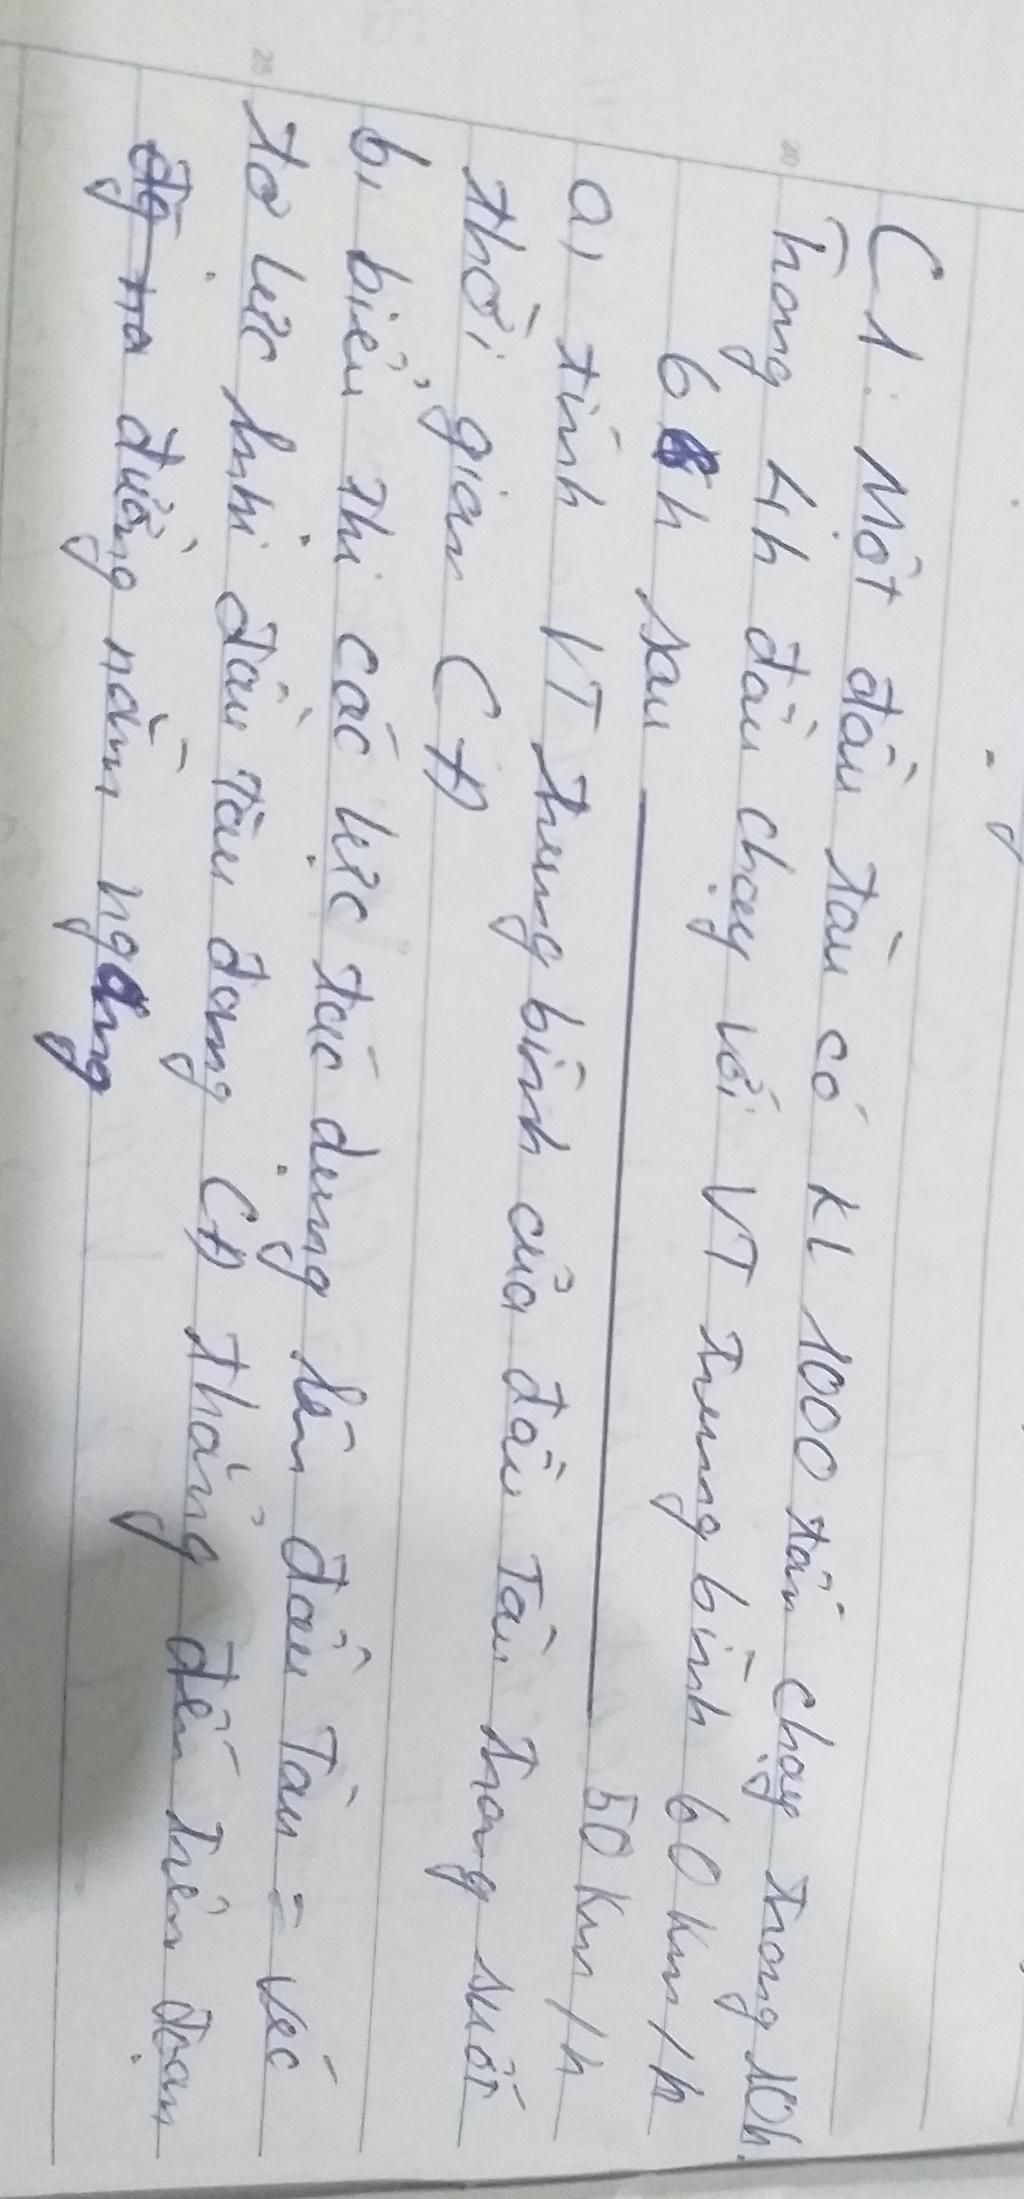 C1: Một đầu tàu có KL 1000 tấn chạy trong 10h.
Trong 4h đầu chạy với VT trung bình 60 km/h
6h sau 50 km/h
a, tính VT trung bình của đầu tàu trong suốt
thời gian CĐ
b, biểu thị các lực tác dụng lên đầu tàu = véc
tơ lực khi đầu tàu đang CĐ thẳng đều trên đoạn
đường nằm ngang